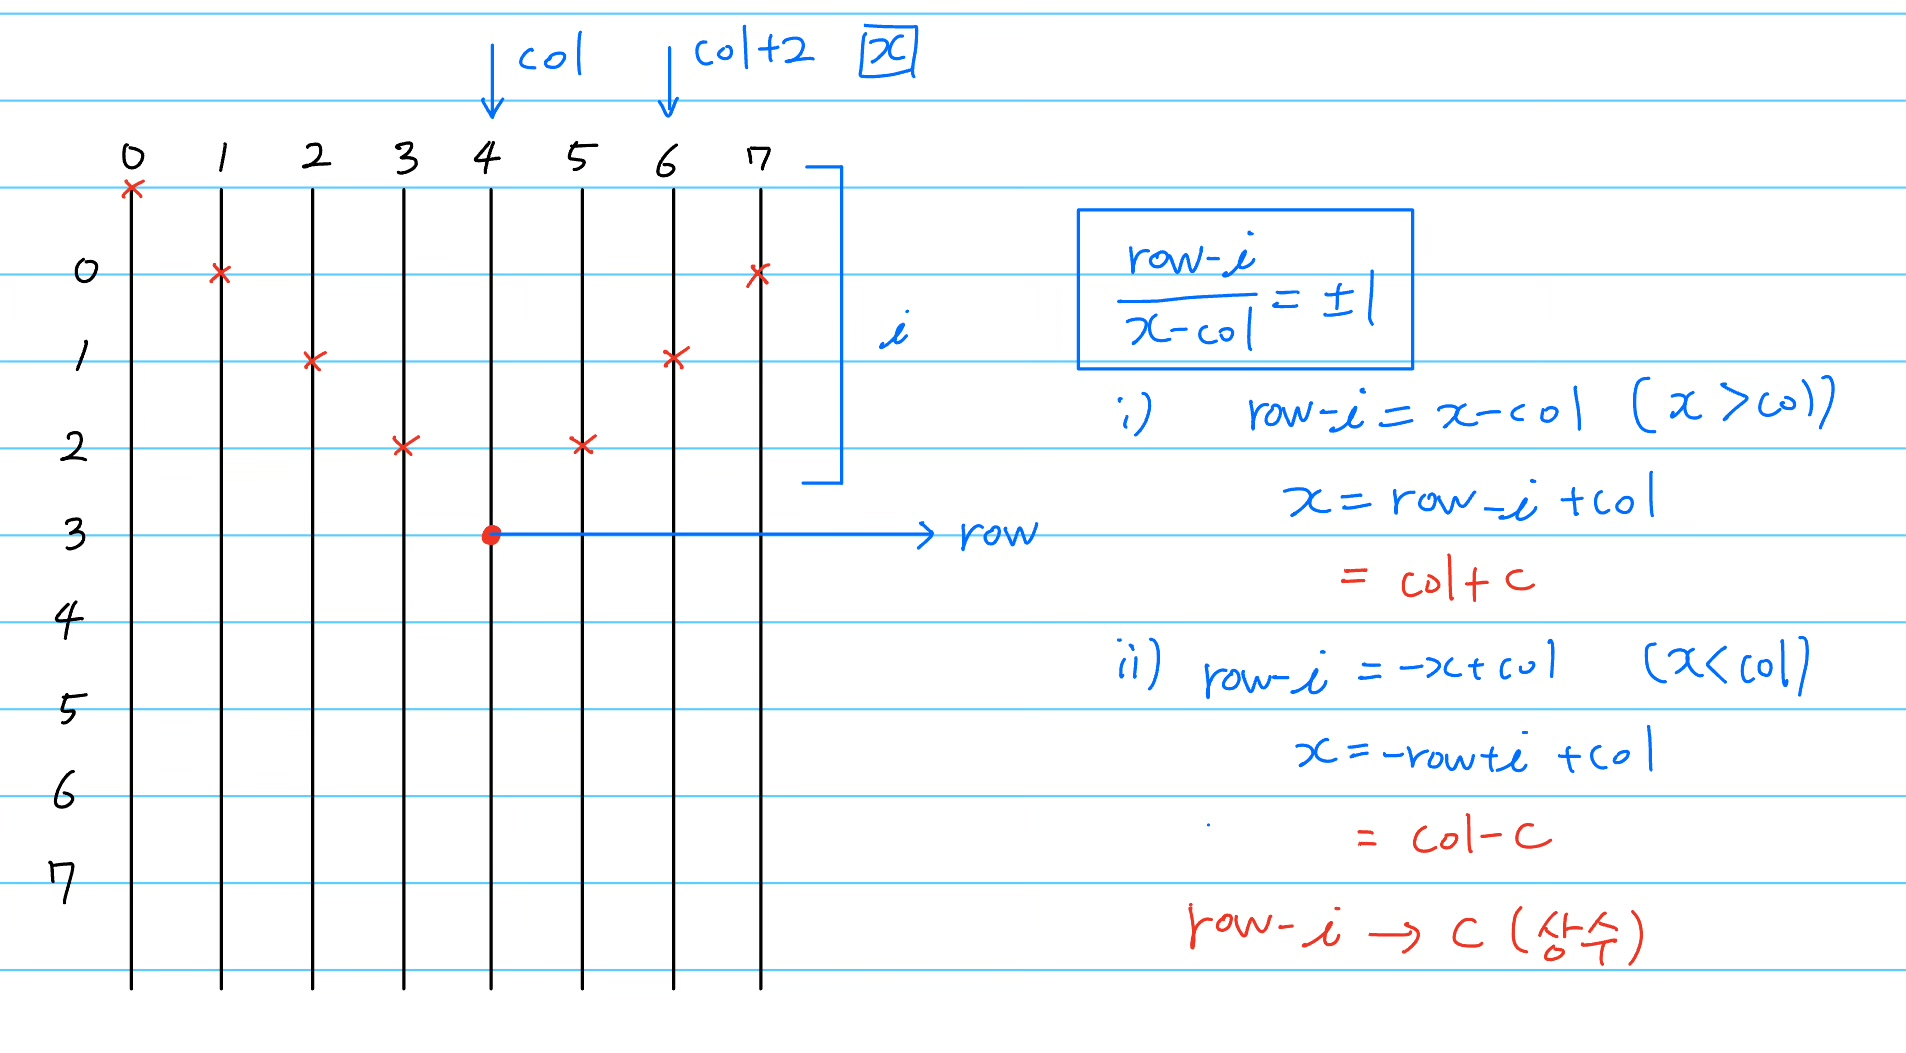 col
col+2 x
0 1 2 3 4 5 6 7
0
1
2
3
4
5
6
7
i
row
row-i
x-col
= ±1
i) row-i = x-col (x > col)
x = row-i + col
= col + c
ii) row-i = -x + col (x < col)
x = -row+i + col
= col - c
row-i → c (상수)